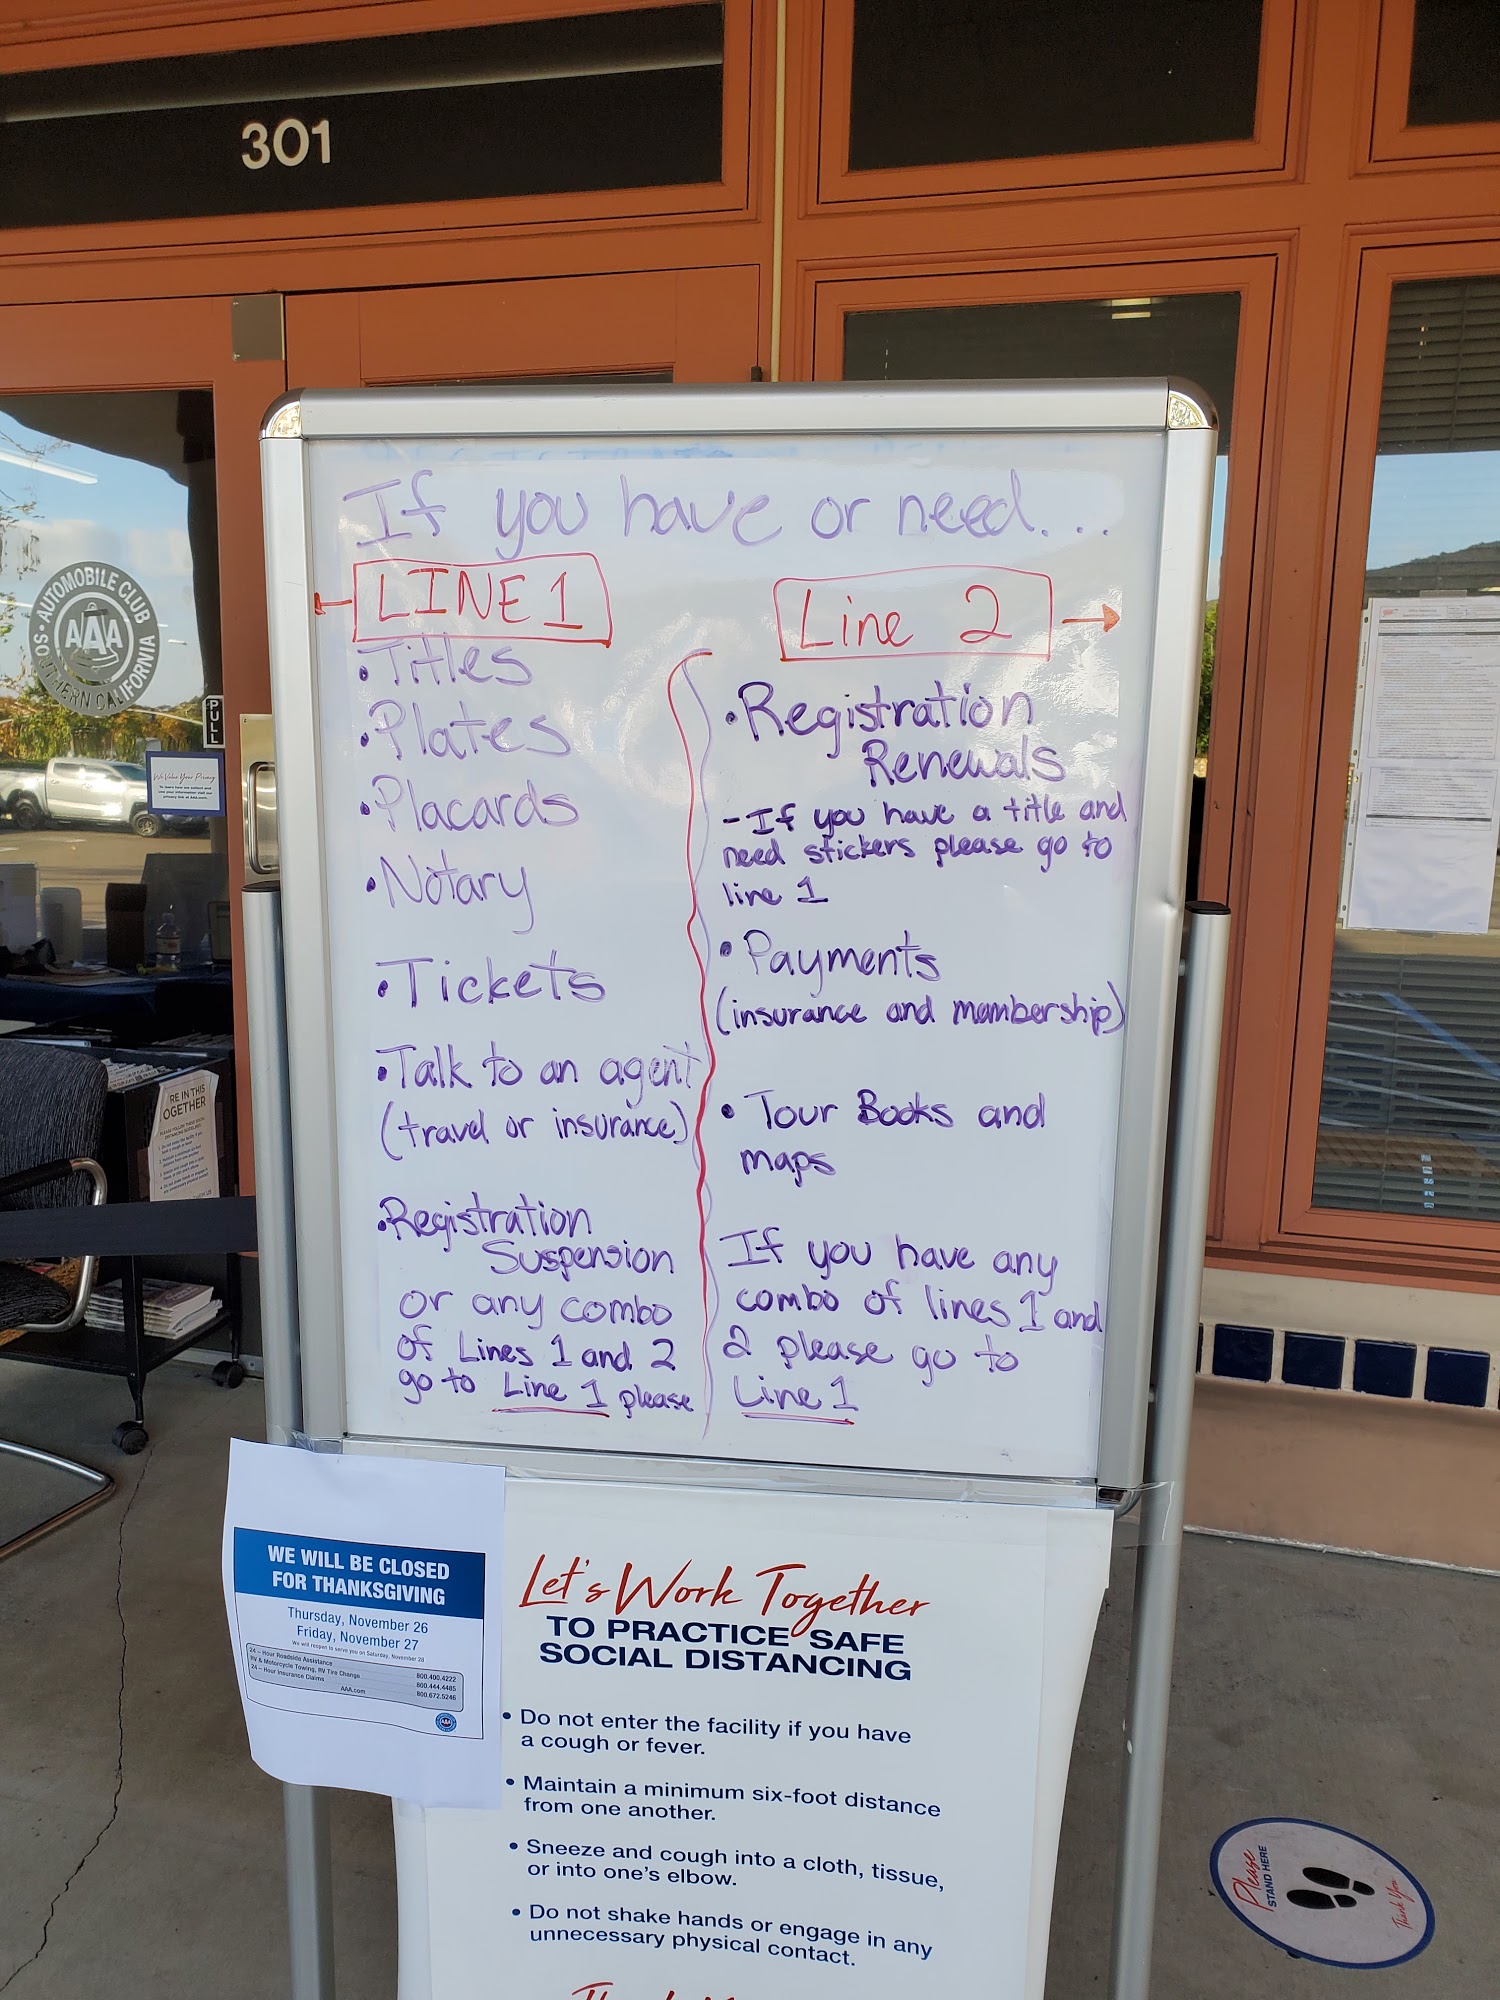 301
AUTOMOBILE CLUB
SOUTHERN CALIFORNIA
AAA
PULL
We Value Your Privacy
If you have or need...
LINE 1
• Titles
• Plates
• Placards
• Notary
• Tickets
• Talk to an agent
(travel or insurance)
• Registration
Suspension
or any combo
of Lines 1 and 2
go to Line 1 please
Line 2
• Registration
Renewals
- If you have a title and
need stickers please go to
line 1
• Payments
(insurance and membership)
• Tour Books and
maps
If you have any
combo of lines 1 and
2 please go to
Line 1
RE IN THIS
OGETHER
WE WILL BE CLOSED
FOR THANKSGIVING
Thursday, November 26
Friday, November 27
We will reopen to serve you on Saturday, November 28
24 – Hour Roadside Assistance 800.400.4222
RV & Motorcycle Towing, RV Tire Change 800.444.4485
24 – Hour Insurance Claims 800.672.5246
AAA.com
Let's Work Together
TO PRACTICE SAFE
SOCIAL DISTANCING
• Do not enter the facility if you have
a cough or fever.
• Maintain a minimum six-foot distance
from one another.
• Sneeze and cough into a cloth, tissue,
or into one's elbow.
• Do not shake hands or engage in any
unnecessary physical contact.
Please
STAND HERE
Thank You